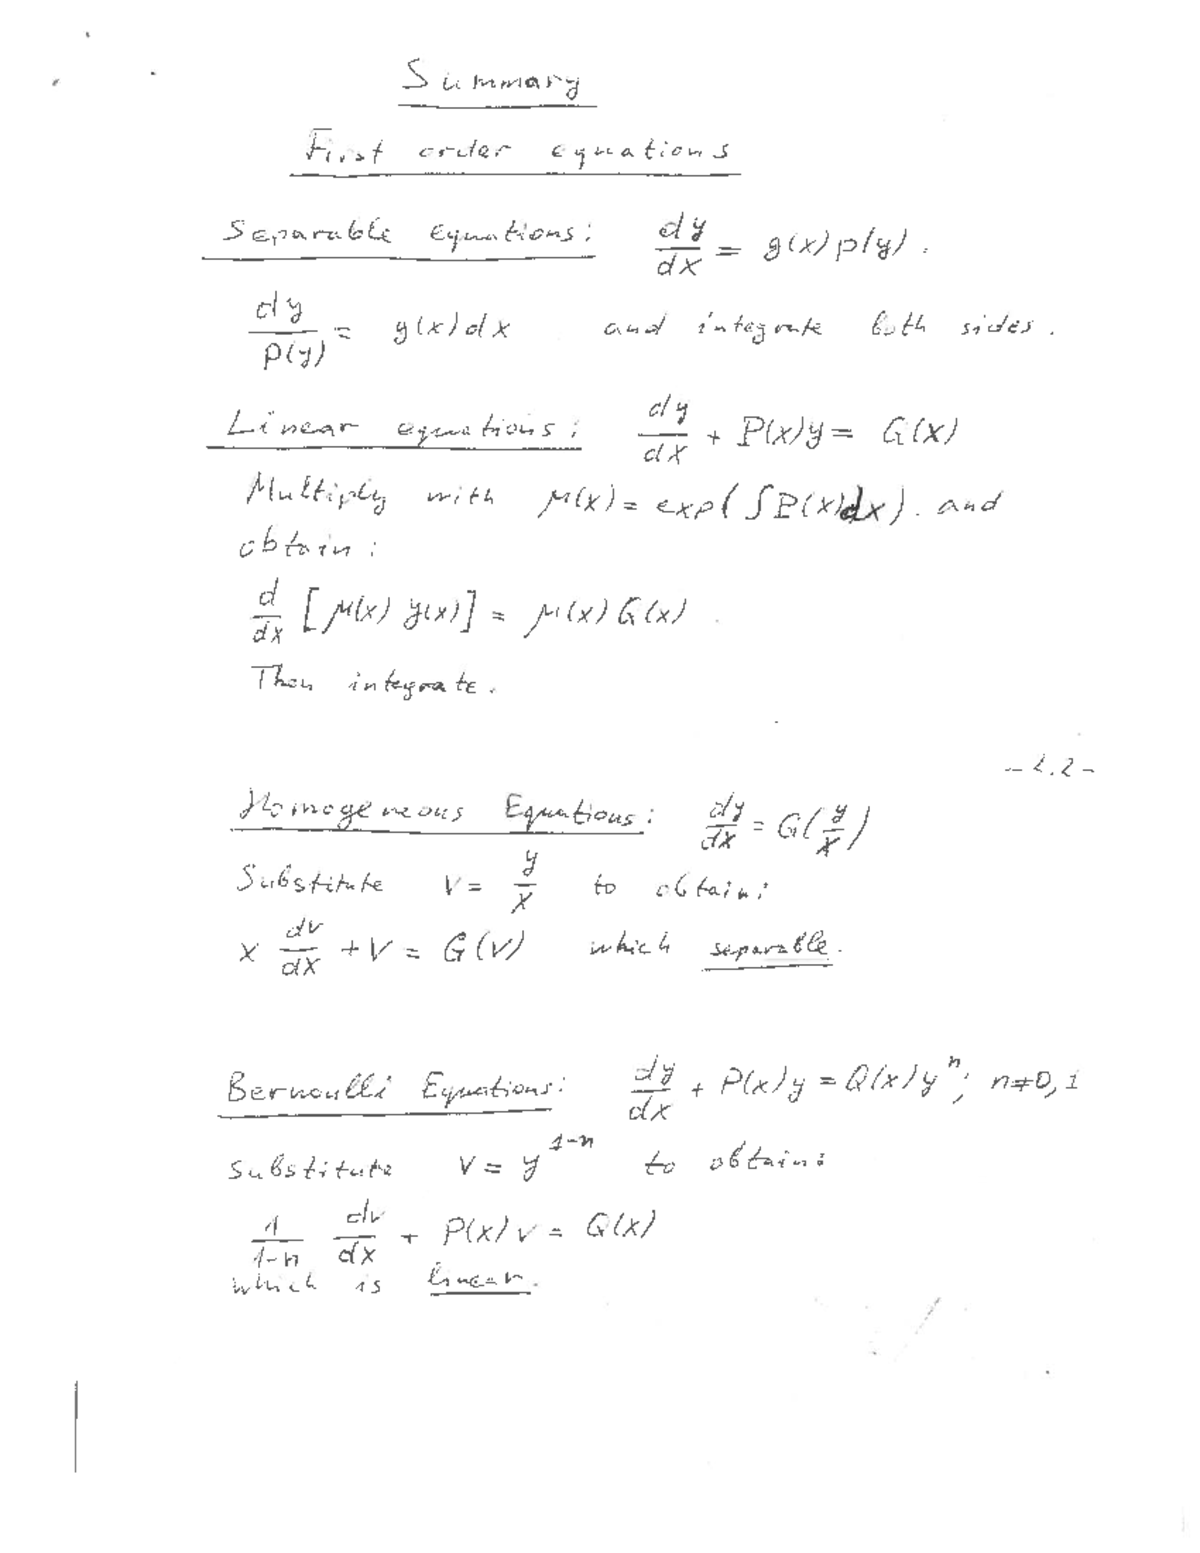 Summary
First order equations
Separable Equations: dy/dx = g(x)p(y).
dy/p(y) = g(x)dx and integrate both sides.
Linear equations: dy/dx + P(x)y = G(x)
Multiply with μ(x) = exp(∫P(x)dx). and
obtain:
d/dx [μ(x) y(x)] = μ(x) G(x).
Then integrate.
Homogeneous Equations: dy/dx = G(y/x)
Substitute v = y/x to obtain:
x dv/dx + v = G(v) which separable.
Bernoulli Equations: dy/dx + P(x)y = Q(x)y^n; n≠0,1
substitute v = y^(1-n) to obtain:
1/(1-n) dv/dx + P(x)v = Q(x)
which is linear.